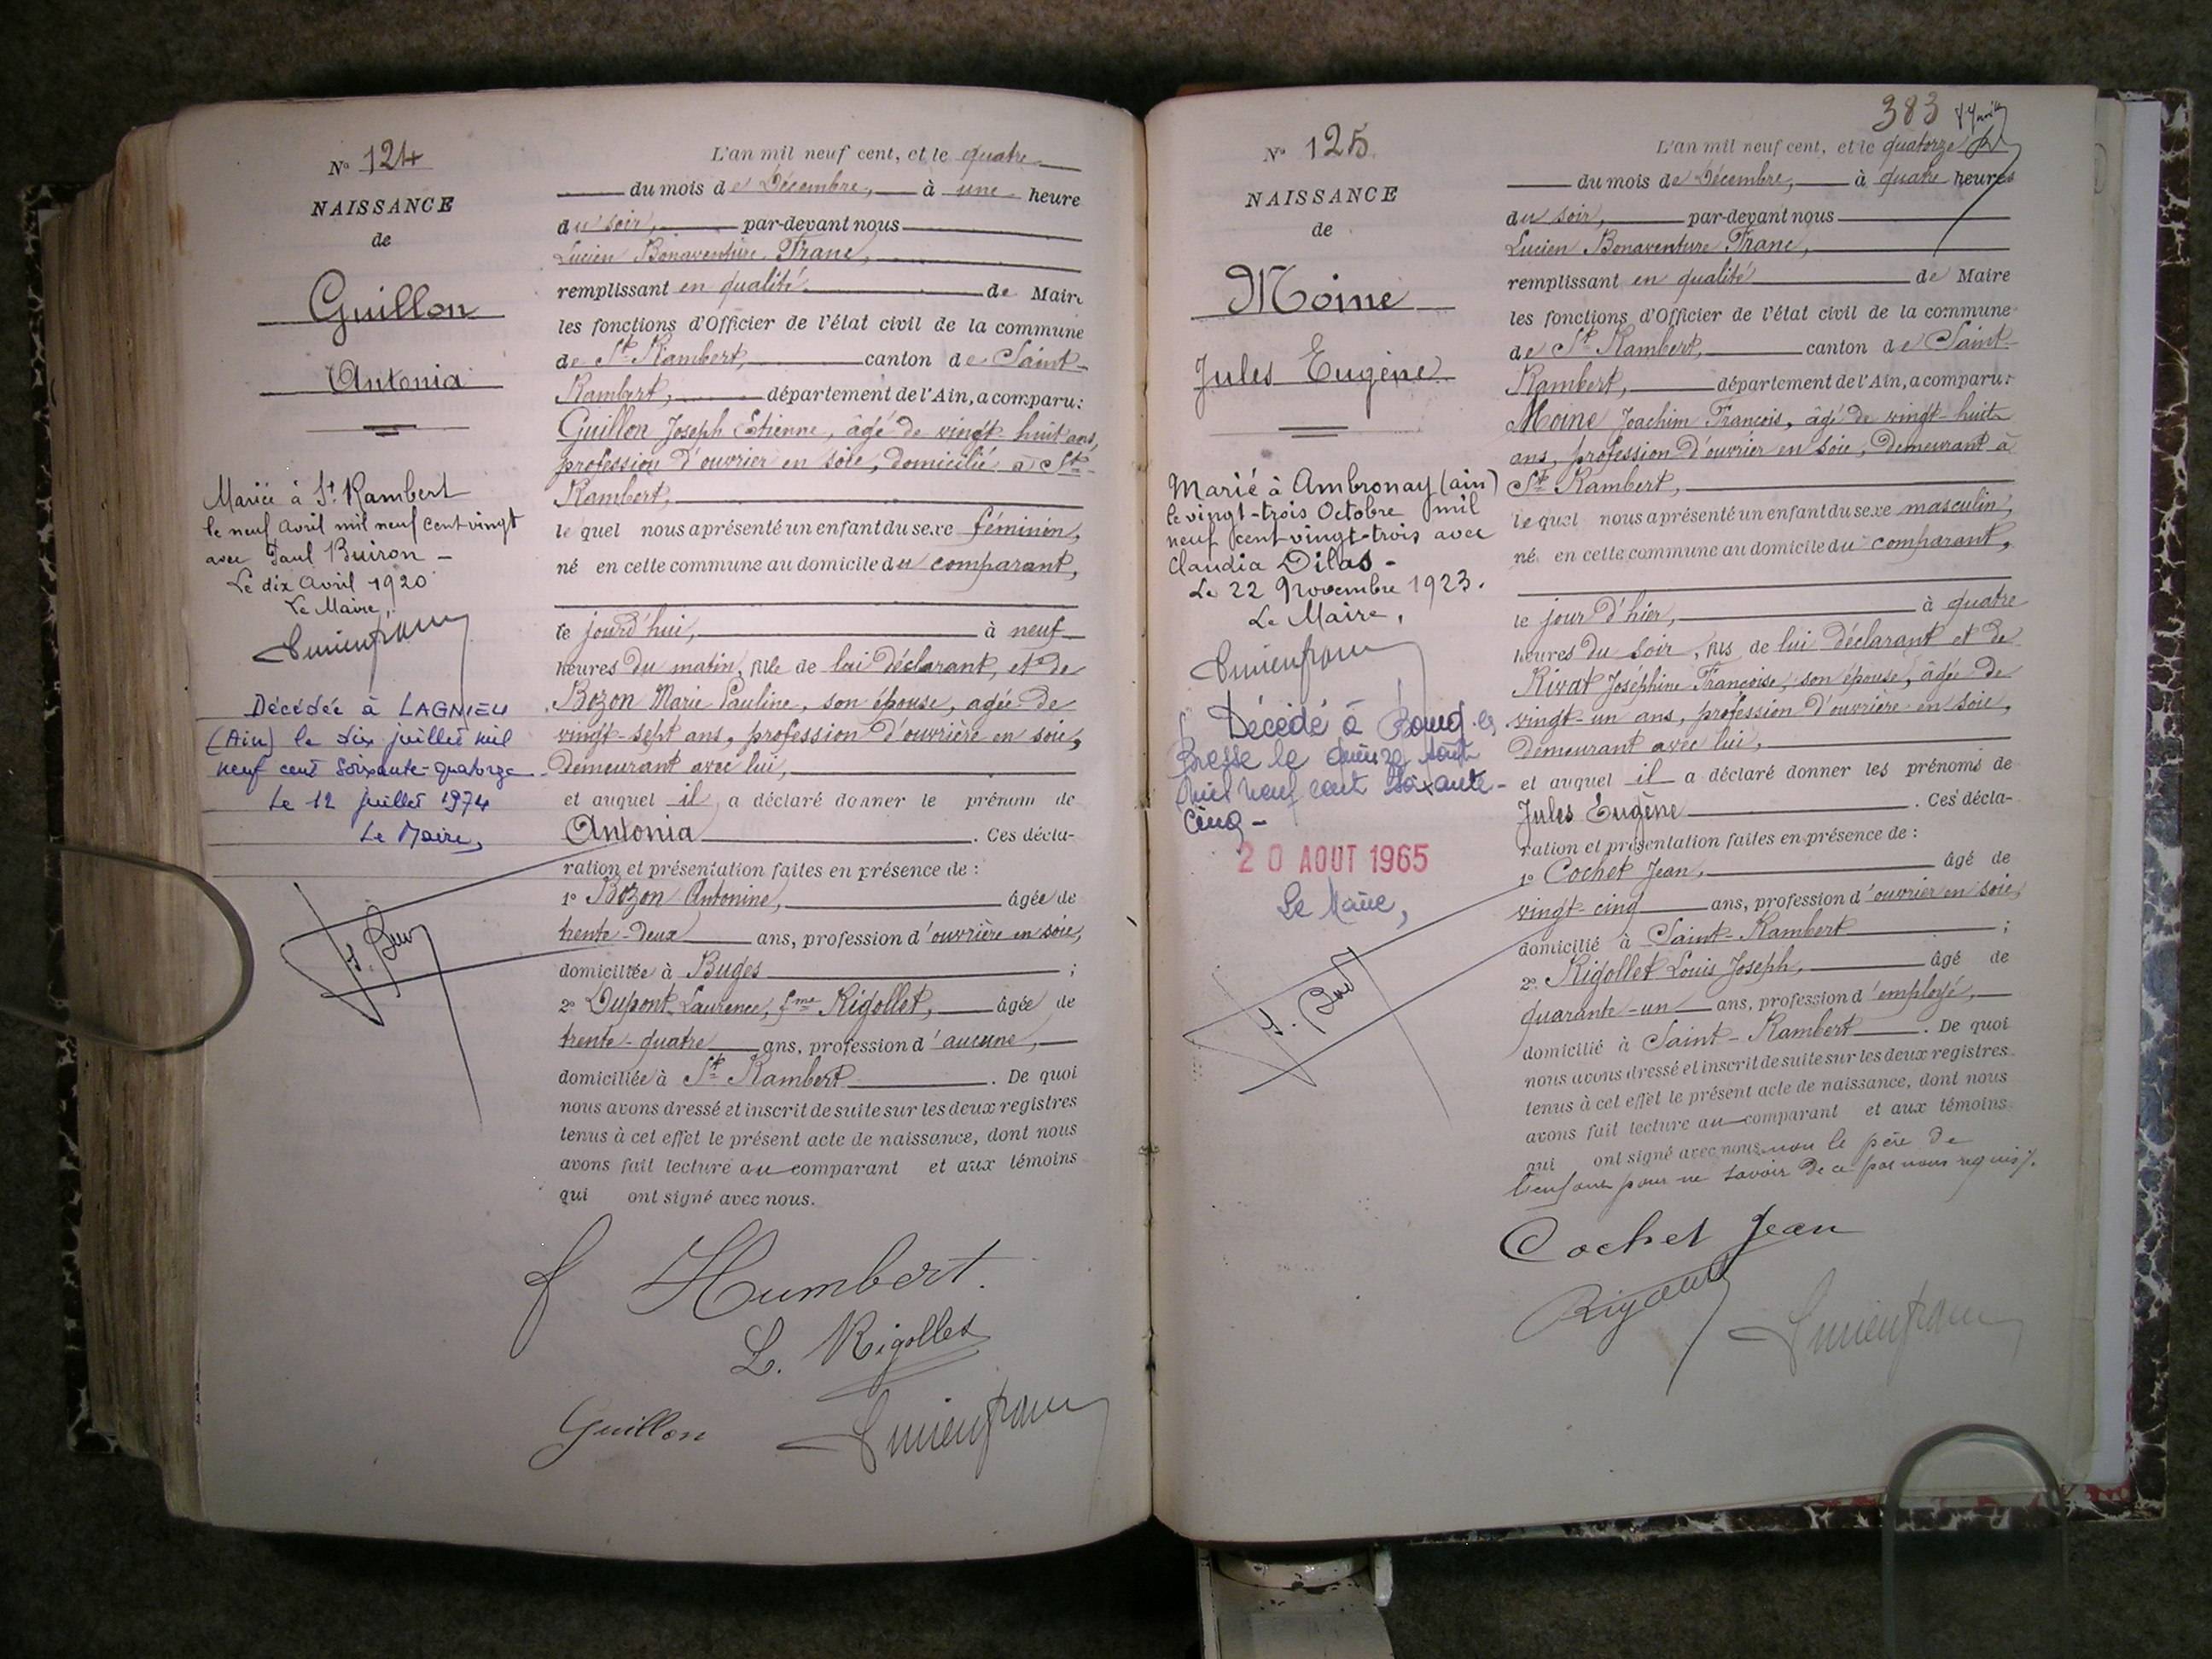 No 124
NAISSANCE
de
Guillon
Antonia
Mariée à St. Rambert
le neuf Avril mil neuf cent vingt
avec Paul Buiron -
Le dix Avril 1920
Le Maire,
Décédée à LAGNIEU
(Ain) le dix juillet mil
neuf cent soixante-quatorze
Le 12 juillet 1974
Le Maire,
L'an mil neuf cent, et le quatre
du mois de Décembre, à une heure
du soir, par-devant nous
Lucien Bonaventure Franc,
remplissant en qualité de Maire
les fonctions d'Officier de l'état civil de la commune
de St Rambert, canton de Saint-
Rambert, département de l'Ain, a comparu:
Guillon Joseph Etienne, âgé de vingt-huit ans,
profession d'ouvrier en soie, domicilié à St-
Rambert,
le quel nous a présenté un enfant du sexe féminin,
né en cette commune au domicile du comparant,
le jourd'hui, à neuf
heures du matin, fille de lui déclarant, et de
Bozon Marie Pauline, son épouse, agée de
vingt-sept ans, profession d'ouvrière en soie,
demeurant avec lui,
et auquel il a déclaré donner le prénom de
Antonia. Ces décla-
ration et présentation faites en présence de :
1o Bozon Antonine, âgée de
trente-deux ans, profession d'ouvrière en soie,
domiciliée à Buges ;
2o Dupont Laurence, fme Rigollet, âgée de
trente-quatre ans, profession d'aucune,
domiciliée à St Rambert. De quoi
nous avons dressé et inscrit de suite sur les deux registres
tenus à cet effet le présent acte de naissance, dont nous
avons fait lecture au comparant et aux témoins
qui ont signé avec nous.
f Humbert.
L. Rigollet
Guillon
383
No 125.
NAISSANCE
de
Moine
Jules Eugène
Marié à Ambronay (ain)
le vingt-trois Octobre mil
neuf cent vingt-trois avec
Claudia Dilas -
Le 22 Novembre 1923.
Le Maire,
Décédé à Bourg en
Bresse le quinze août
mil neuf cent soixante-
cinq -
20 AOUT 1965
Le Maire,
L'an mil neuf cent, et le quatorze
du mois de Décembre, à quatre heures
du soir, par-devant nous
Lucien Bonaventure Franc,
remplissant en qualité de Maire
les fonctions d'Officier de l'état civil de la commune
de St Rambert, canton de Saint-
Rambert, département de l'Ain, a comparu:
Moine Joachim François, âgé de vingt-huit
ans, profession d'ouvrier en soie, demeurant à
St Rambert,
le quel nous a présenté un enfant du sexe masculin,
né en cette commune au domicile du comparant,
le jour d'hier, à quatre
heures du soir, fils de lui déclarant et de
Rivat Joséphine Françoise, son épouse, âgée de
vingt-un ans, profession d'ouvrière en soie,
demeurant avec lui,
et auquel il a déclaré donner les prénoms de
Jules Eugène. Ces décla-
ration et présentation faites en présence de :
1o Cochet Jean, âgé de
vingt-cinq ans, profession d'ouvrier en soie,
domicilié à Saint-Rambert ;
2o Rigollet Louis Joseph, âgé de
quarante-un ans, profession d'employé,
domicilié à Saint-Rambert. De quoi
nous avons dressé et inscrit de suite sur les deux registres
tenus à cet effet le présent acte de naissance, dont nous
avons fait lecture au comparant et aux témoins
qui ont signé avec nous non le père de
l'enfant pour ne savoir de ce par nous requis.
Cochet Jean